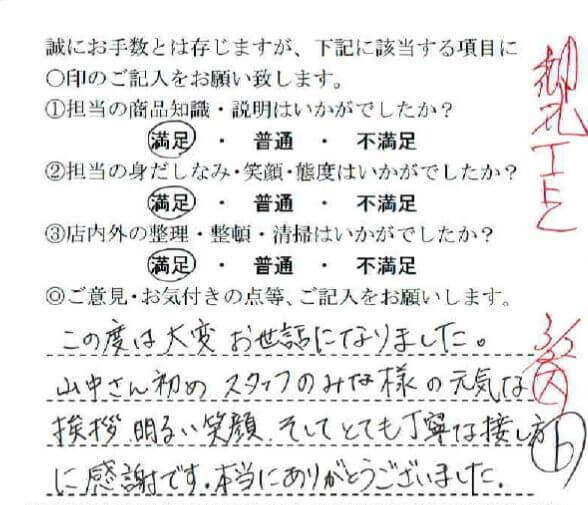 誠にお手数とは存じますが、下記に該当する項目に
○印のご記入をお願い致します。
①担当の商品知識・説明はいかがでしたか?
満足 ・ 普通 ・ 不満足
②担当の身だしなみ・笑顔・態度はいかがでしたか?
満足 ・ 普通 ・ 不満足
③店内外の整理・整頓・清掃はいかがでしたか?
満足 ・ 普通 ・ 不満足
◎ご意見・お気付きの点等、ご記入をお願いします。
この度は大変お世話になりました。
山中さん初めスタッフのみな様の元気な
挨拶 明るい笑顔、そしてとても丁寧な接し方
に感謝です。本当にありがとうございました。